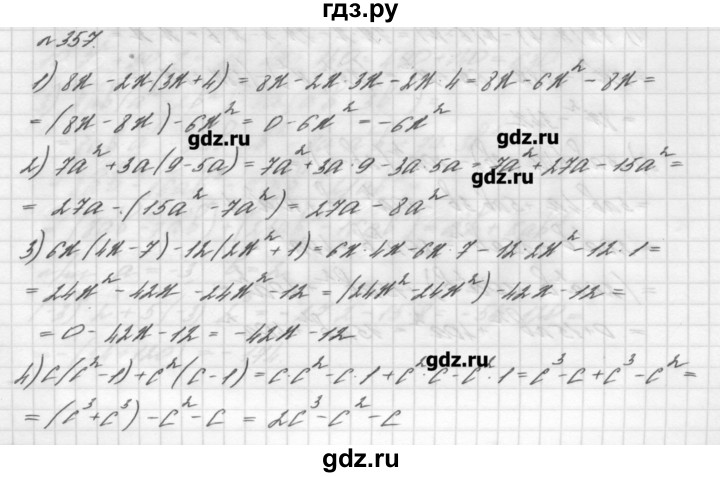 гдз.ру
№357.
1) 8x - 2x(3x+4) = 8x - 2x·3x - 2x·4 = 8x - 6x² - 8x =
= (8x - 8x) - 6x² = 0 - 6x² = -6x²
gdz.ru
gdz.ru
2) 7a² + 3a(9-5a) = 7a² + 3a·9 - 3a·5a = 7a² + 27a - 15a² =
gdz.ru
= 27a - (15a² - 7a²) = 27a - 8a²
3) 6x(4x-7) - 12(2x²+1) = 6x·4x - 6x·7 - 12·2x² - 12·1 =
= 24x² - 42x - 24x² - 12 = (24x² - 24x²) - 42x - 12 =
= 0 - 42x - 12 = -42x - 12
gdz.ru
4) c(c²-1) + c²(c-1) = c·c² - c·1 + c²·c - c²·1 = c³ - c + c³ - c² =
= (c³+c³) - c² - c = 2c³ - c² - c
gdz.ru